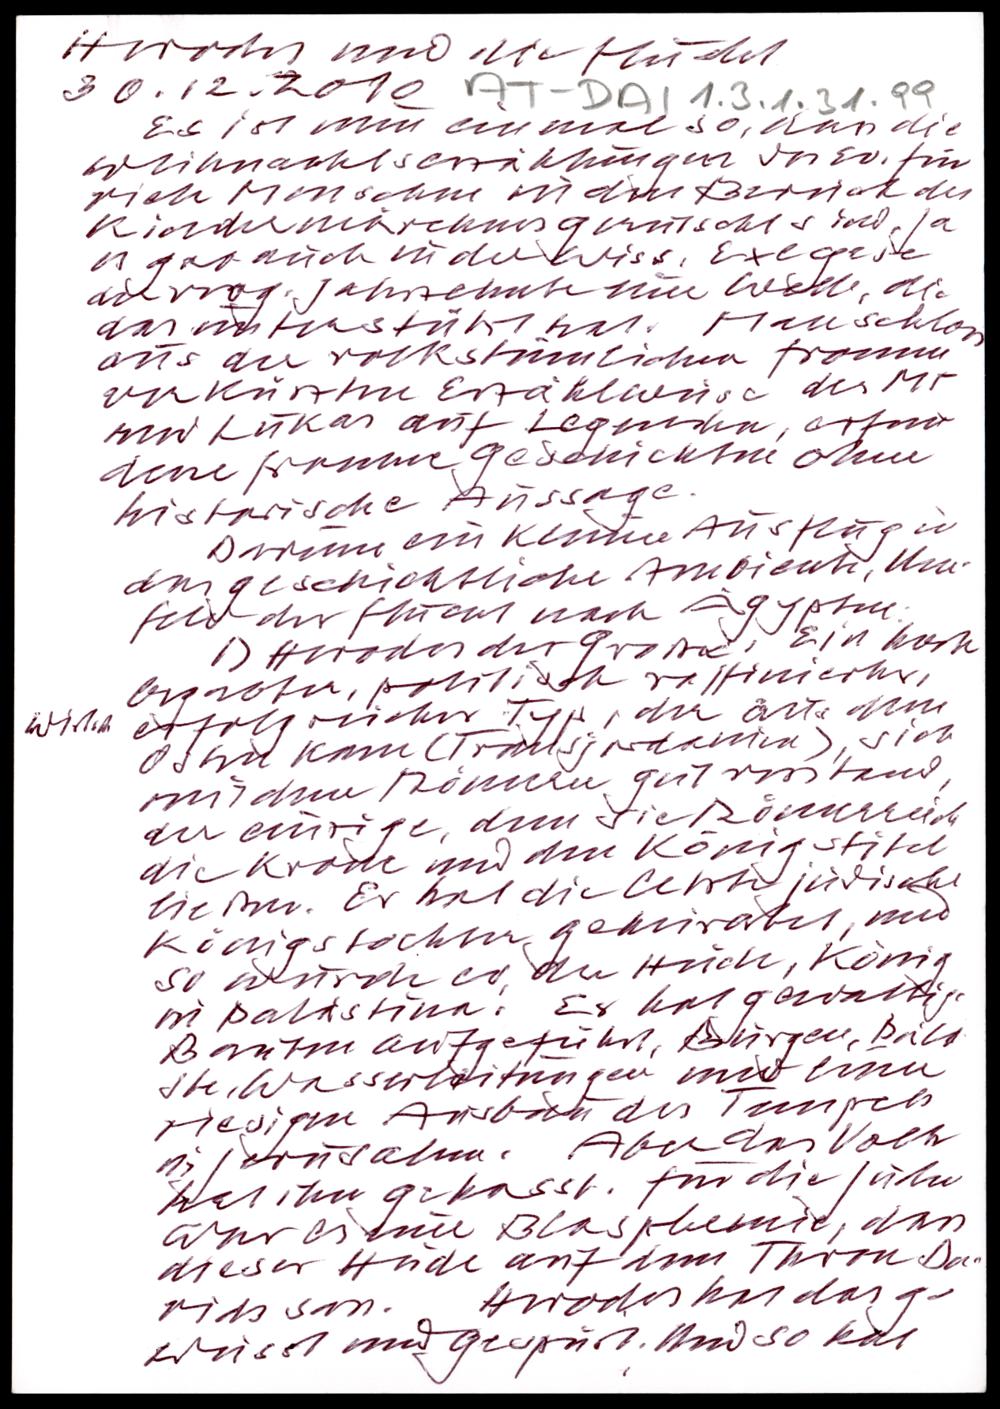 Herodes und die Flucht
30.12.2010 AT-DAI 1.3.1.31.99
Es ist nun einmal so, dass die
Weihnachtserzählungen des Ev. für
viele Menschen in den Bereich des
Kindermärchens gerutscht sind, ja
es gab auch in der wiss. Exegese
der vorg. Jahrzehnte eine Welle, die
das unterstützt hat. Man schloss
aus der volkstümlichen frommen
verkürzten Erzählweise des Mt
und Lukas auf Legenden, erfun
dene fromme Geschichten ohne
historische Aussage.
Darum ein kleiner Ausflug in
das geschichtliche Ambiente, Um-
feld der Flucht nach Ägypten.
1) Herodes der Große: Ein hoch
begabter, politisch raffinierter,
erfolgreicher Typ, der aus dem
Osten kam (Transjordanien), sich
mit den Römern gut verstand,
der einzige, dem die Römer
die Krone und den Königstitel
ließen. Er hat die letzte jüdische
Königstochter geheiratet, und
so wurde er, der Heide, König
in Palästina. Er hat gewaltige
Bauten aufgeführt, Burgen, Palä
ste, Wasserleitungen und einen
riesigen Ausbau des Tempels
in Jerusalem. Aber das Volk
hat ihn gehasst. Für die Juden
war es eine Blasphemie, dass
dieser Heide auf dem Thron Da-
vids sass. Herodes hat das ge
wusst und gespürt. Und so hat